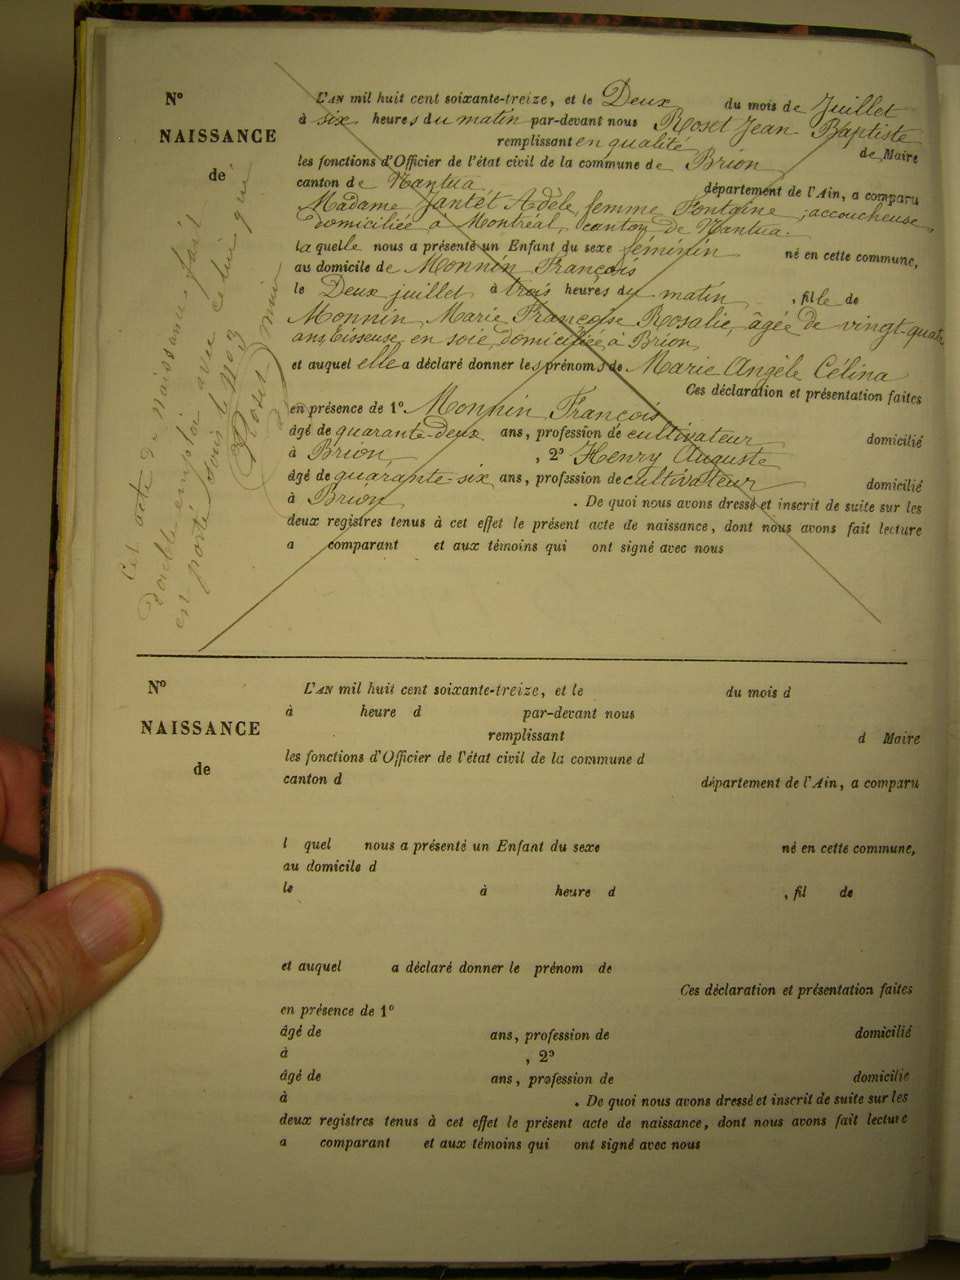 N°
NAISSANCE
de
L'AN mil huit cent soixante-treize, et le Deux du mois de Juillet
à six heures du matin par-devant nous Roset Jean Baptiste
remplissant en qualité de Maire
les fonctions d'Officier de l'état civil de la commune de Brion
canton de Nantua département de l'Ain, a comparu
Madame Jantet Adèle femme Fontaine, accoucheuse,
domiciliée à Montréal, canton de Nantua.
La quelle nous a présenté un Enfant du sexe féminin né en cette commune,
au domicile de Monnin François
le Deux juillet à trois heures du matin, fille de
Monnin Marie Françoise Rosalie, âgée de vingt quatre
ans, tisseuse en soie, domiciliée à Brion
et auquel elle a déclaré donner les prénoms de Marie Angèle Célina
Ces déclaration et présentation faites
en présence de 1°. Monnin François
âgé de quarante-deux ans, profession de cultivateur domicilié
à Brion, 2° Henry Auguste
âgé de quarante-six ans, profession de cultivateur domicilié
à Brion. De quoi nous avons dressé et inscrit de suite sur les
deux registres tenus à cet effet le présent acte de naissance, dont nous avons fait lecture
a comparant et aux témoins qui ont signé avec nous
Cet acte de naissance fait
double emploi avec celui qui
est porté sous le N°3
Roset
N°
NAISSANCE
de
L'AN mil huit cent soixante-treize, et le du mois d
à heure d par-devant nous
remplissant d Maire
les fonctions d'Officier de l'état civil de la commune d
canton d département de l'Ain, a comparu
l quel nous a présenté un Enfant du sexe né en cette commune,
au domicile d
le à heure d , fil de
et auquel a déclaré donner le prénom de
Ces déclaration et présentation faites
en présence de 1°
âgé de ans, profession de domicilié
à , 2°
âgé de ans, profession de domicilié
à . De quoi nous avons dressé et inscrit de suite sur les
deux registres tenus à cet effet le présent acte de naissance, dont nous avons fait lecture
a comparant et aux témoins qui ont signé avec nous